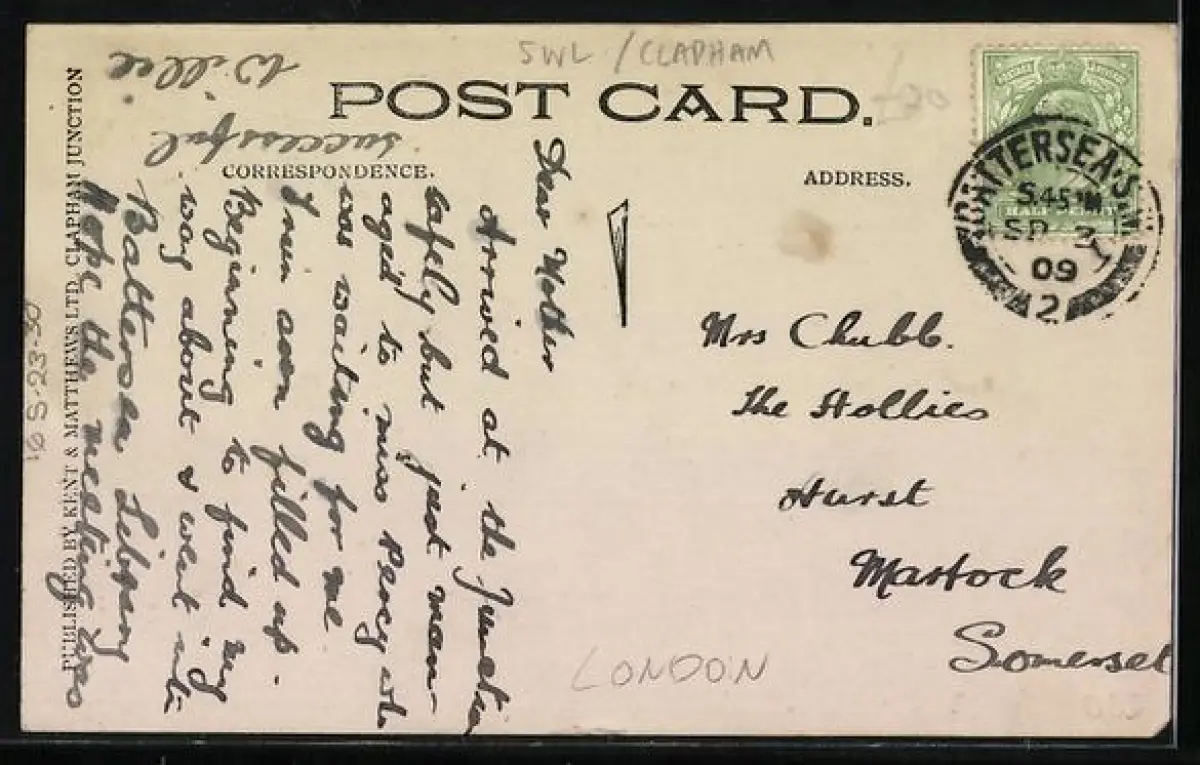 SWL / CLAPHAM
POST CARD.
CORRESPONDENCE.
ADDRESS.
HALF PENNY
BATTERSEA S.W.
5.45 PM
SP
09
A2
Dear Mother
Arrived at the Junction
safely but just man-
aged to miss Percy who
was waiting for me
Train soon filled up.
Beginning to find my
way about & went into
Battersea Library
Hope the meeting was
successful
Willie
Mrs Chubb.
The Hollies
Hurst
Martock
Somerset
LONDON
PUBLISHED BY KENT & MATTHEWS LTD. CLAPHAM JUNCTION